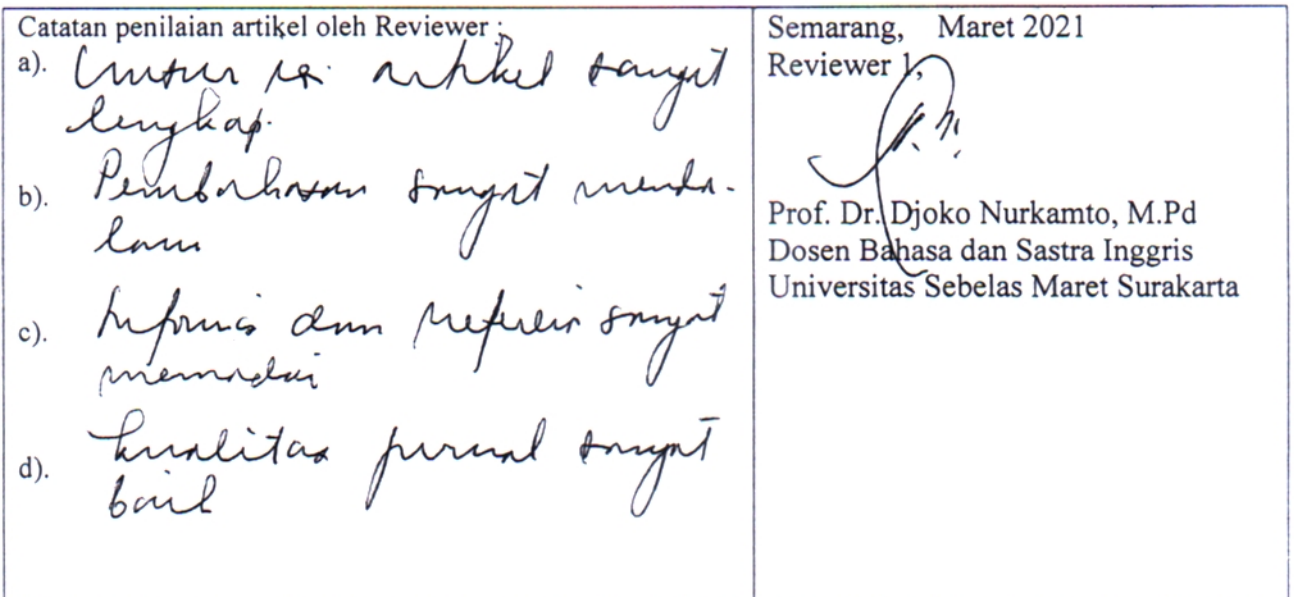 Catatan penilaian artikel oleh Reviewer :
a). Unsur isi artikel sangat
lengkap.
b). Pembahasan sangat menda-
lam
c). Informasi dan referensi sangat
memadai
d). kualitas jurnal sangat
baik
Semarang, Maret 2021
Reviewer 1,
Prof. Dr. Djoko Nurkamto, M.Pd
Dosen Bahasa dan Sastra Inggris
Universitas Sebelas Maret Surakarta